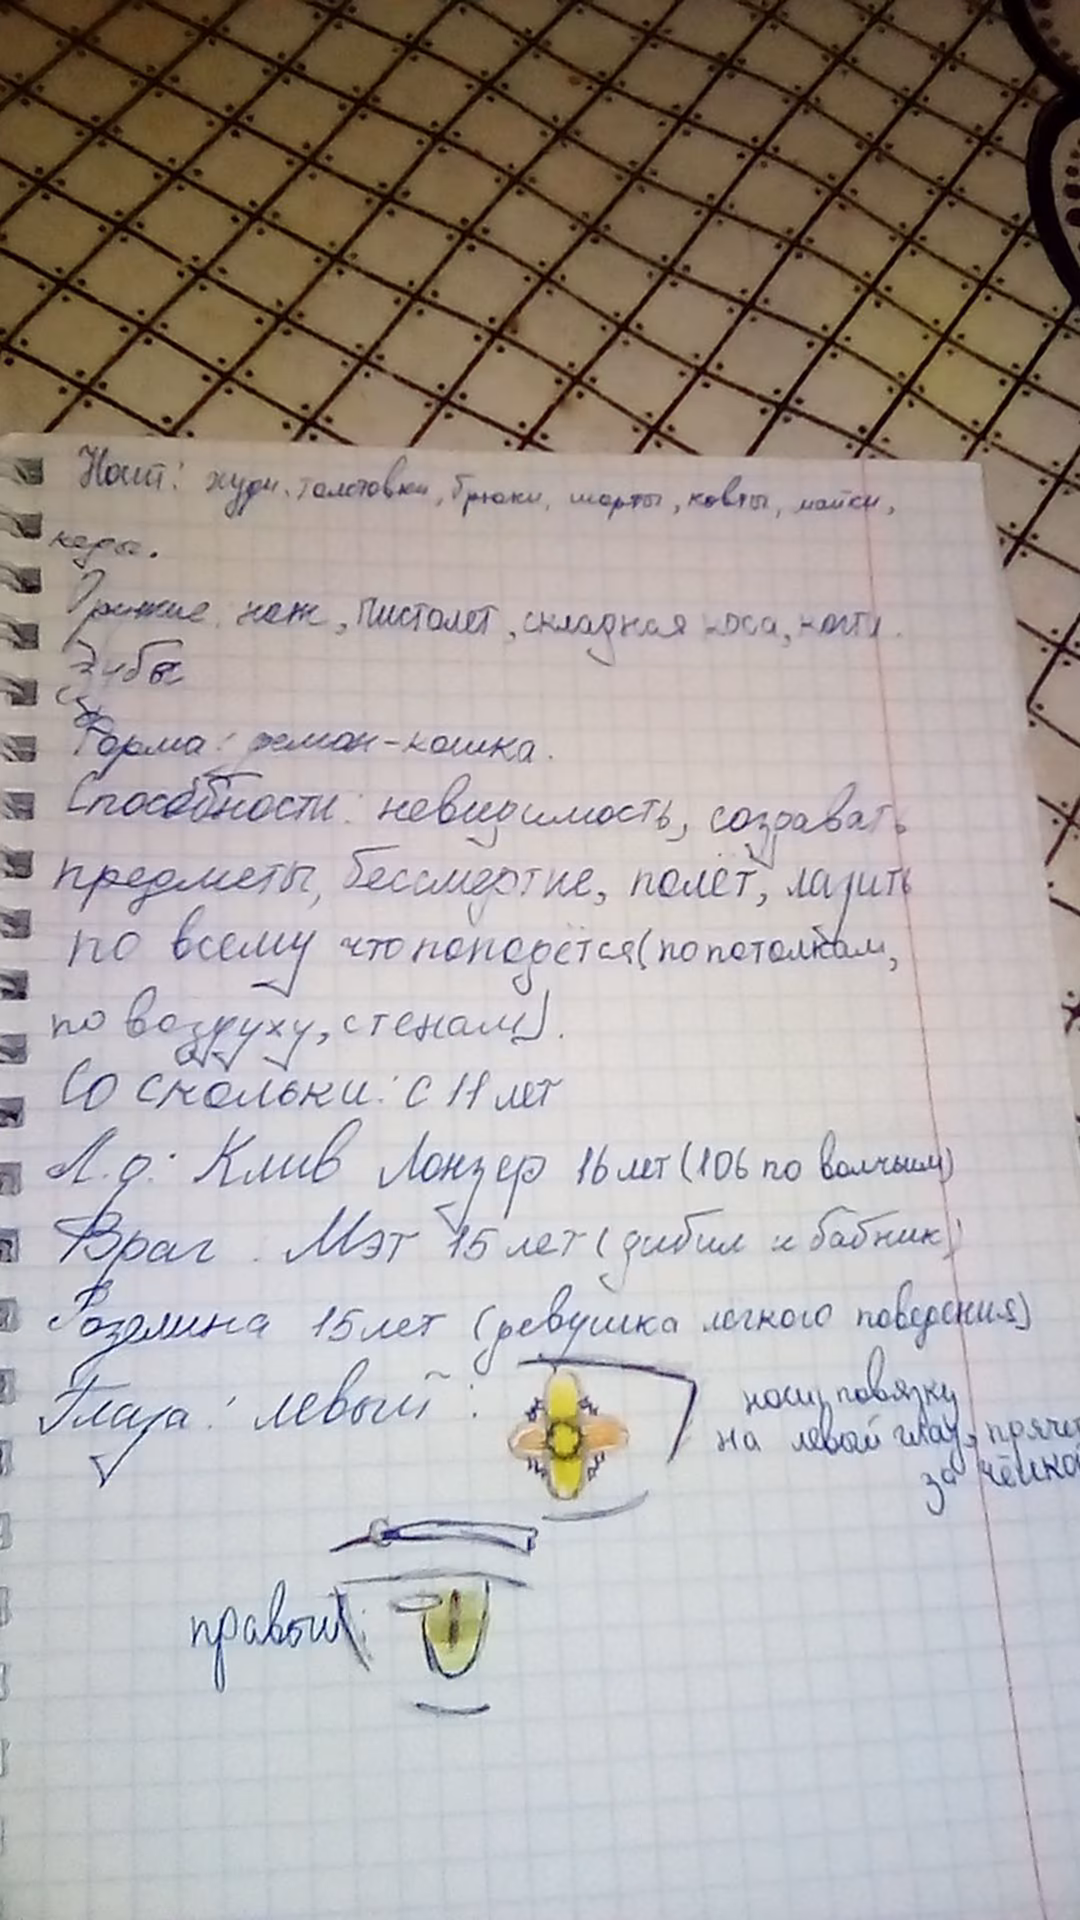 Носит: худи, толстовки, брюки, шорты, кофты, майки,
кеды.
Оружие: нож, пистолет, складная коса, когти.
Зубы
Форма: демон-кошка.
Способности: невидимость, создавать
предметы, бессмертие, полёт, лазить
по всему что попадётся(по потолкам,
по воздуху, стенам).
Со скольки: с 11 лет
Л.д: Клив Лонзер 16 лет (106 по волчьим)
Враг: Мэт 15 лет (дибил и бабник)
Розалина 15 лет (девушка легкого поведения)
Глаза: левый:
носит повязку
на левой глазу, прячет
за чёлкой
правый: